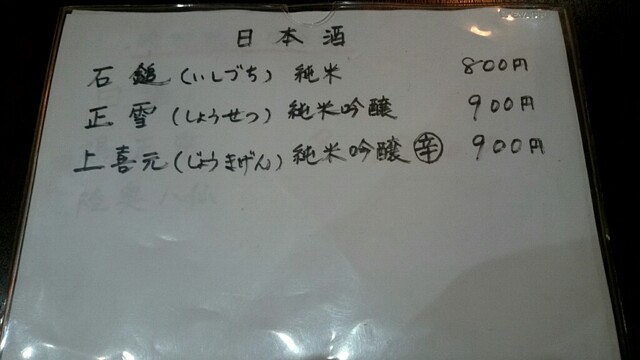 日本酒
石鎚(いしづち) 純米 800円
正雪(しょうせつ) 純米吟醸 900円
上喜元(じょうきげん) 純米吟醸 ㊛辛 900円